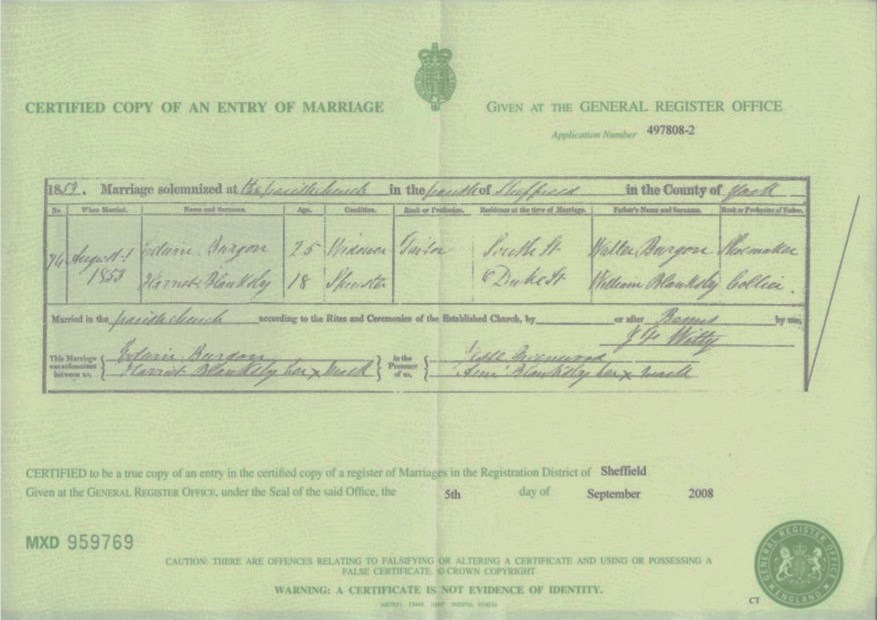 CERTIFIED COPY OF AN ENTRY OF MARRIAGE
GIVEN AT THE GENERAL REGISTER OFFICE
Application Number 497808-2
1853. Marriage solemnized at the parish church in the parish of Sheffield in the County of York
No. When Married. Name and Surname. Age. Condition. Rank or Profession. Residence at the time of Marriage. Father's Name and Surname. Rank or Profession of Father.
74 August 1 Edwin Burgon 25 Widower South St Walter Burgon Shoemaker
1853 Harriet Blanksby 18 Spinster Duke St William Blanksby Collier.
Married in the parish church according to the Rites and Ceremonies of the Established Church, by or after Banns by me,
Witty
This Marriage was solemnized between us, Edwin Burgon in the Presence of us, Greenwood
Harriet Blanksby her x mark Ann Blanksby her x mark
CERTIFIED to be a true copy of an entry in the certified copy of a register of Marriages in the Registration District of Sheffield
Given at the GENERAL REGISTER OFFICE, under the Seal of the said Office, the 5th day of September 2008
MXD 959769
CAUTION: THERE ARE OFFENCES RELATING TO FALSIFYING OR ALTERING A CERTIFICATE AND USING OR POSSESSING A
FALSE CERTIFICATE. © CROWN COPYRIGHT
WARNING: A CERTIFICATE IS NOT EVIDENCE OF IDENTITY.
GENERAL REGISTER OFFICE
ENGLAND
CT